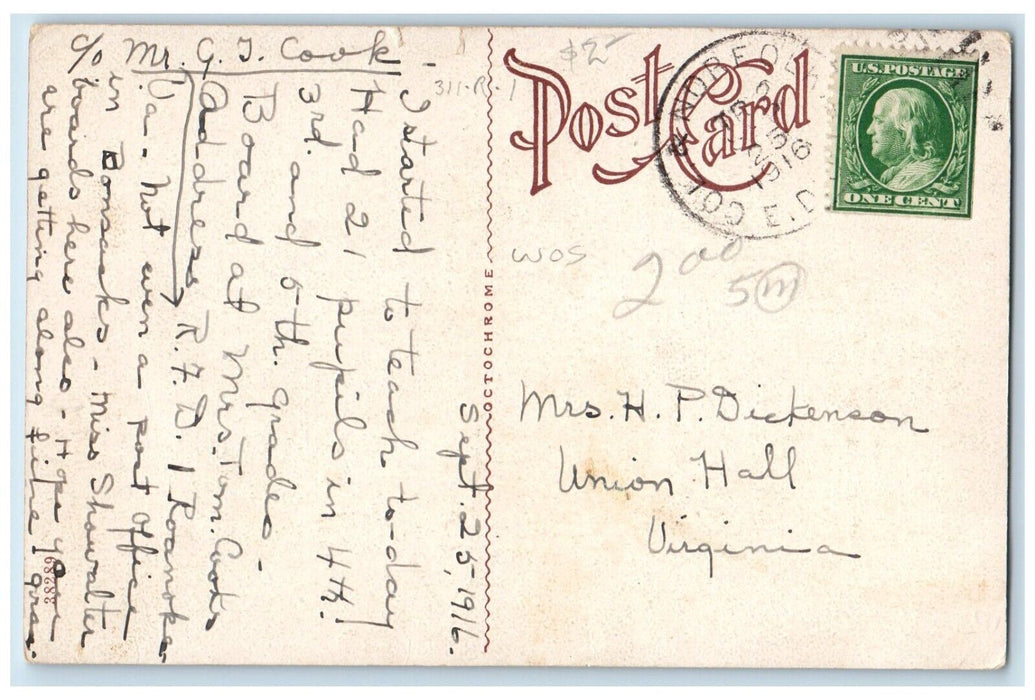 c/o Mr. G. T. Cook
311-R-1
$2
Post Card
COL & NORFOLK
SEP
25
1916
E.D.
U.S. POSTAGE
ONE CENT
wos
2 00
5 m
OCTOCHROME
38289
Sept. 25, 1916.
I started to teach to-day!
Had 21 pupils in 4th!
3rd. and 6th. grades.
Board at Mrs. Tom. Cooks
Address R.F.D. 1 Roanoke
Va. Not even a post office
in Bonsacks. Miss Showalter
boards here also. Hope you
are getting along fine
Mrs. H. P. Dickenson
Union Hall
Virginia